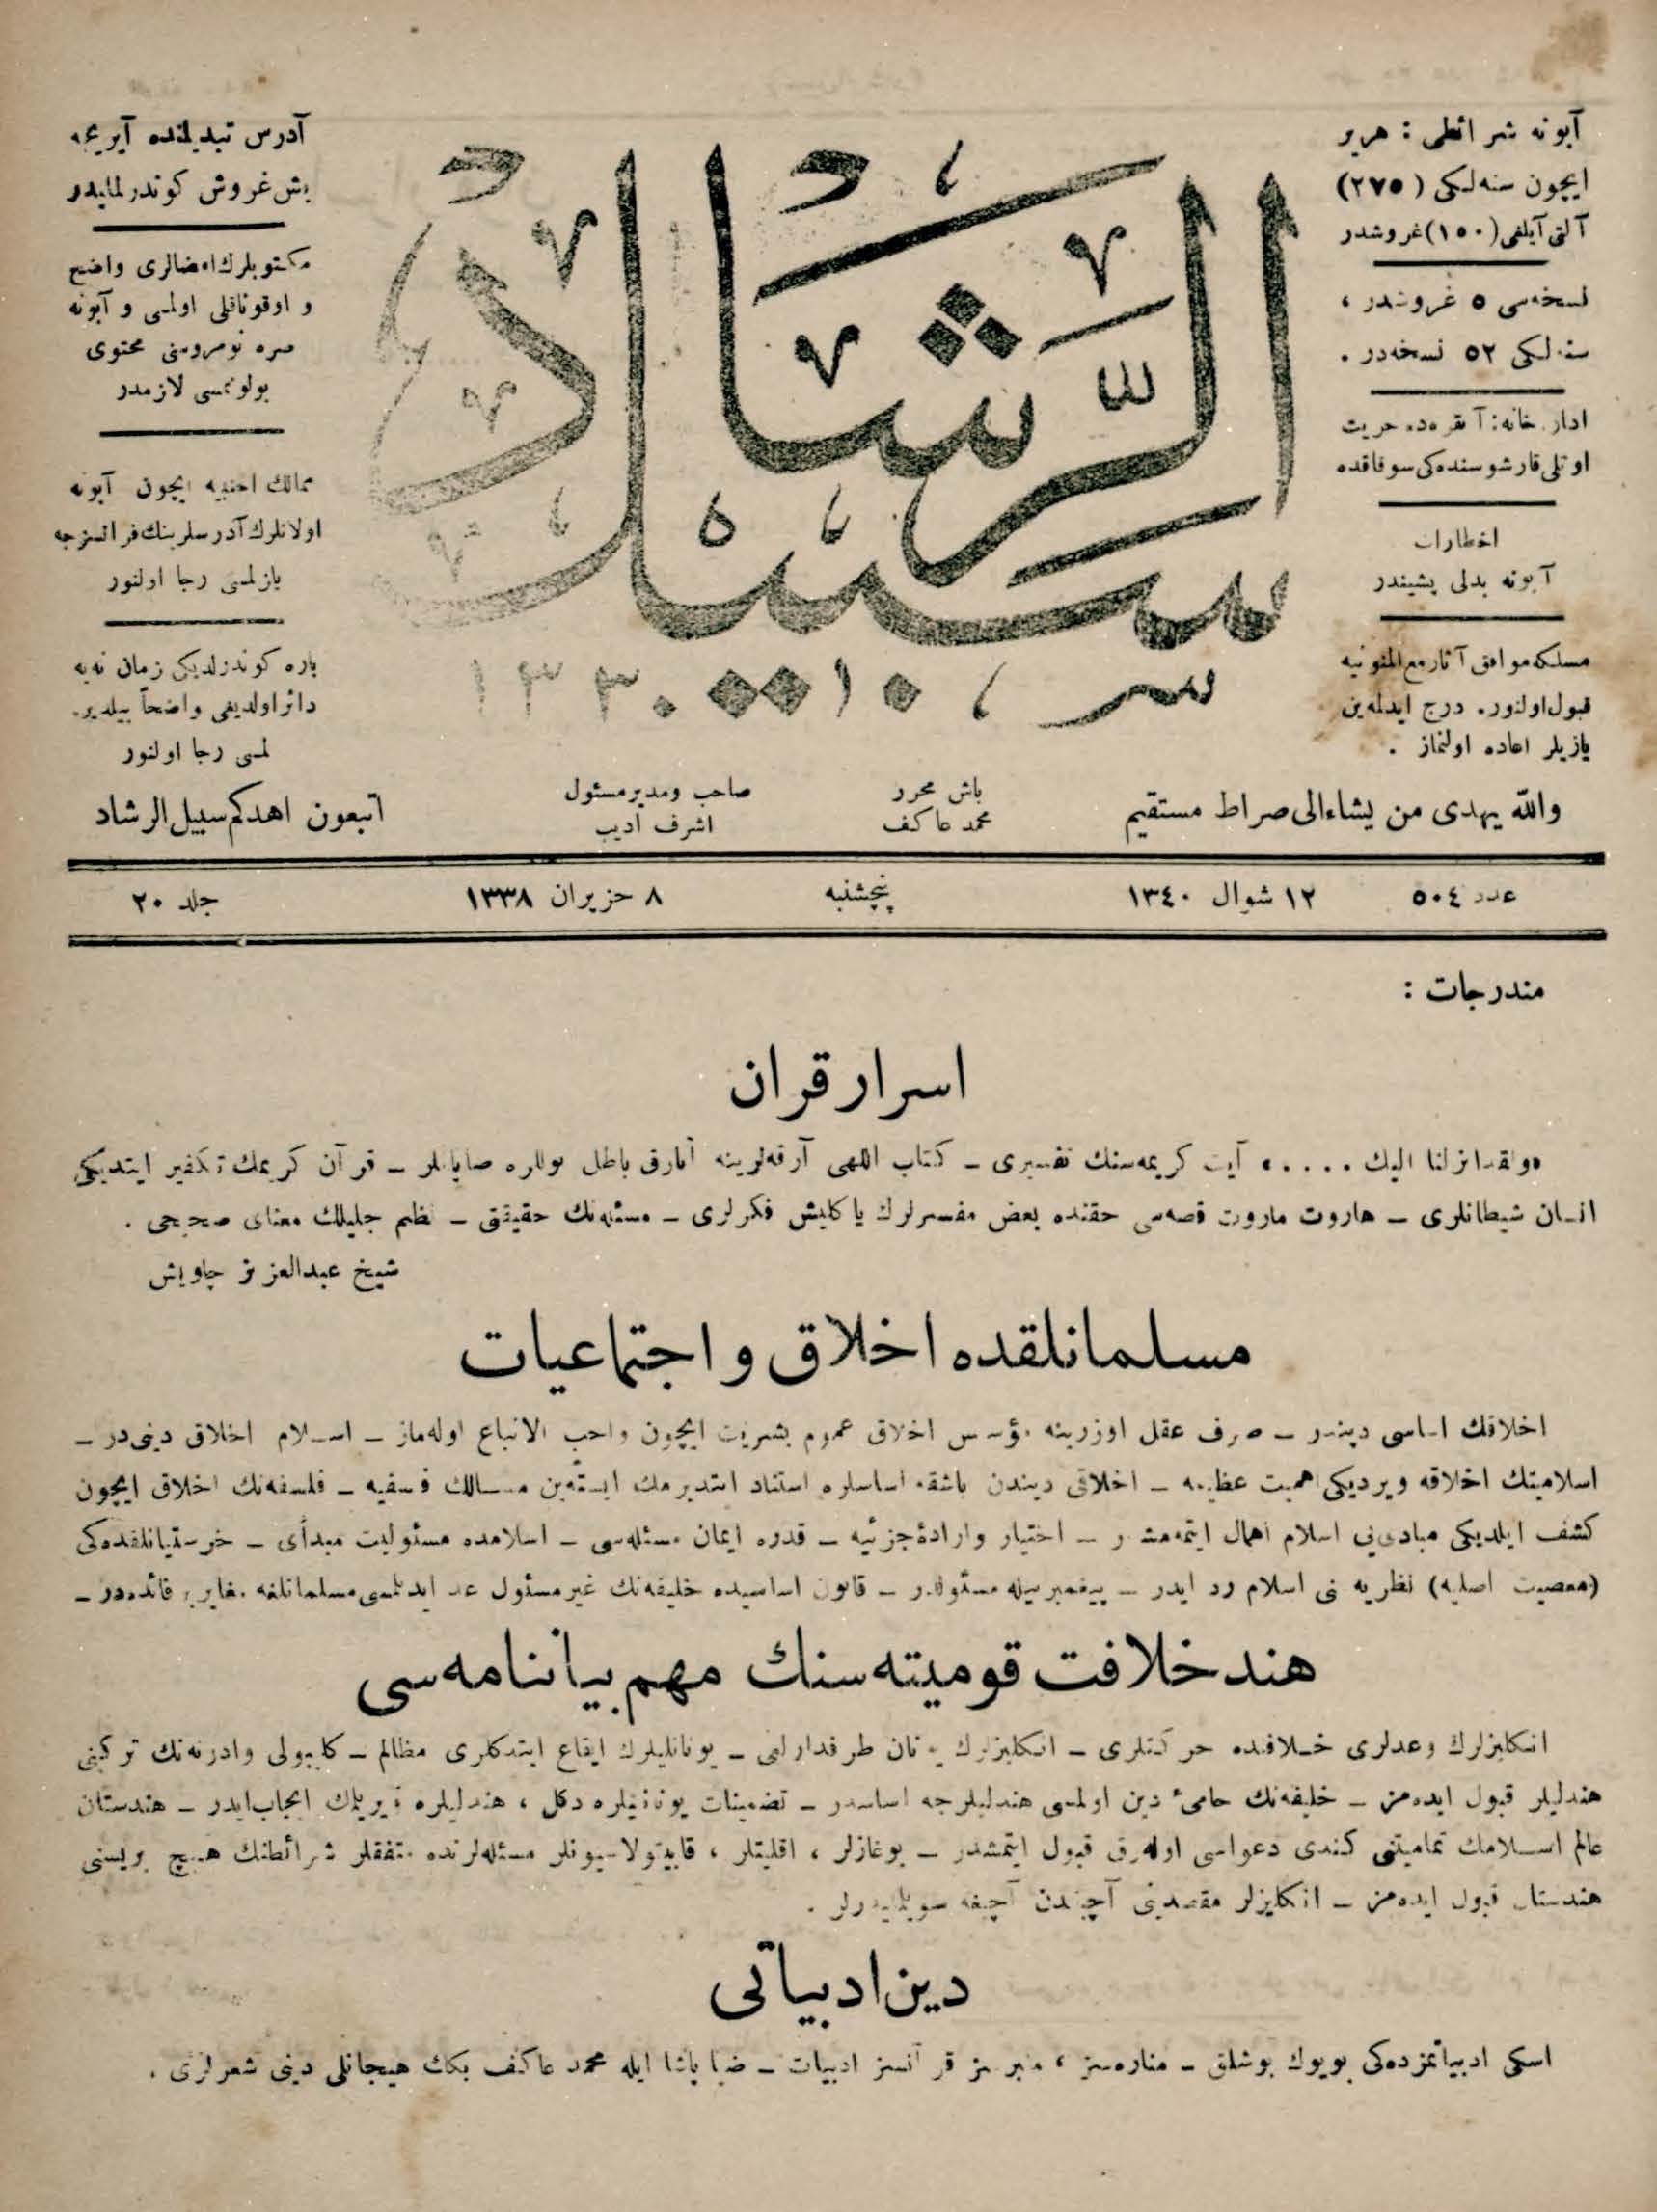 آبونه شرائطی : هر یر
ایچون سنه‌لكی (٢٧٥)
آلتی آیلغی (١٥٠) غروشدر
نسخه‌سی ٥ غروشدر ،
سنه‌لكی ٥٢ نسخه‌در .
اداره‌خانه : آنقره‌ده حریت
اوتلی قارشوسنده‌كی سوقاقده
اخطارات
آبونه بدلی پشیندر
مسلكه موافق آثار مع‌الممنونیه
قبول اولنور. درج ایدلمه‌ین
یازیلر اعاده اولنماز .
سبیل الرشاد
آدرس تبدیلنده آیریجه
بش غروش كوندرلمالیدر
مكتوبلرك امضالری واضح
و اوقوناقلی اولمسی و آبونه
صره نومروسنی محتوی
بولونمسی لازمدر
ممالك اجنبیه ایچون آبونه
اولانلرك آدرسلرینك فرانسزجه
یازلمسی رجا اولنور
پاره كوندرلدیكی زمان نه‌یه
دائر اولدیغی واضحاً بیلدیر‌-
لمسی رجا اولنور
والله یهدی من یشاء الی صراط مستقیم
باش محرر
محمد عاكف
صاحب ومدیر مسئول
اشرف ادیب
اتبعون اهدكم سبیل الرشاد
عدد ٥٠٤ ١٢ شوال ١٣٤٠ پنجشنبه ٨ حزیران ١٣٣٨ جلد ٢٠
مندرجات :
اسرار قران
«ولقد انزلنا الیك . . . . » آیت كریمه‌سنك تفسیری ـ كتاب اللهی آرقه‌لرینه آتارق باطل یوللره صاپانلر ـ قرآن كریمك تكفیر ایتدیكی
انسان شیطانلری ـ هاروت ماروت قصه‌سی حقنده بعض مفسرلرك یاكلیش فكرلری ـ مسئله‌نك حقیقتی ـ نظم جلیلك معنای صحیحی .
شیخ عبدالعزیز چاویش
مسلمانلقده اخلاق و اجتماعیات
اخلاقك اساسی دیندر ـ صرف عقل اوزرینه مؤسس اخلاق عموم بشریت ایچون واجب الاتباع اوله‌ماز ـ اسلام اخلاق دینی‌در ـ
اسلامیتك اخلاقه ویردیكی اهمیت عظیمه ـ اخلاقی دیندن باشقه اساسلره استناد ایتدیرمك ایسته‌ین مسالك فلسفیه ـ فلسفه‌نك اخلاق ایچون
كشف ایلدیكی مبادی‌یی اسلام اهمال ایتمه‌مشدر ـ اختیار وارادۀ جزئیه ـ قدره ایمان مسئله‌سی ـ اسلامده مسئولیت مبدأی ـ خرستیانلقده‌كی
(معصیت اصلیه) نظریه‌ نی اسلام رد ایدر ـ پیغمبر بیله مسئولدر ـ قانون اساسیده خلیفه‌نك غیر مسئول عد ایدلمسی مسلمانلغه مغایر ـ
هند خلافت قومیته‌سنك مهم بیاننامه‌سی
انكلیزلرك وعدلری خلافنده حركتلری ـ انكلیزلرك یونان طرفدارلغی ـ یونانلیلرك ایقاع ایتدكلری مظالم ـ كلیبولی وادرنه‌نك تركنی
هندلیلر قبول ایده‌مز ـ خلیفه‌نك حامیٔ دین اولمسی هندلیلرجه اساسدر ـ تضمینات یونانلیلره دكل ، هندلیلره ویریلمك ایجاب ایدر ـ هندستان
عالم اسلامك تمامیتنی كندی دعواسی اوله‌رق قبول ایتمشدر ـ بوغازلر ، اقلیتلر ، قاپیتولاسیونلر مسئله‌لرنده متفقلر شرائطنك هیچ بریسنی
هندستان قبول ایده‌مز ـ انكلیزلر مقصدینی آچیقدن آچیغه سویله‌میدرلر .
دین ادبیاتی
اسكی ادبیاتمزده‌كی بویوك بوشلق ـ مناره‌سز ، منبرسز قرآنسز ادبیات ـ ضیا پاشا ایله محمد عاكف بكك هیجانلی دینی شعرلری .